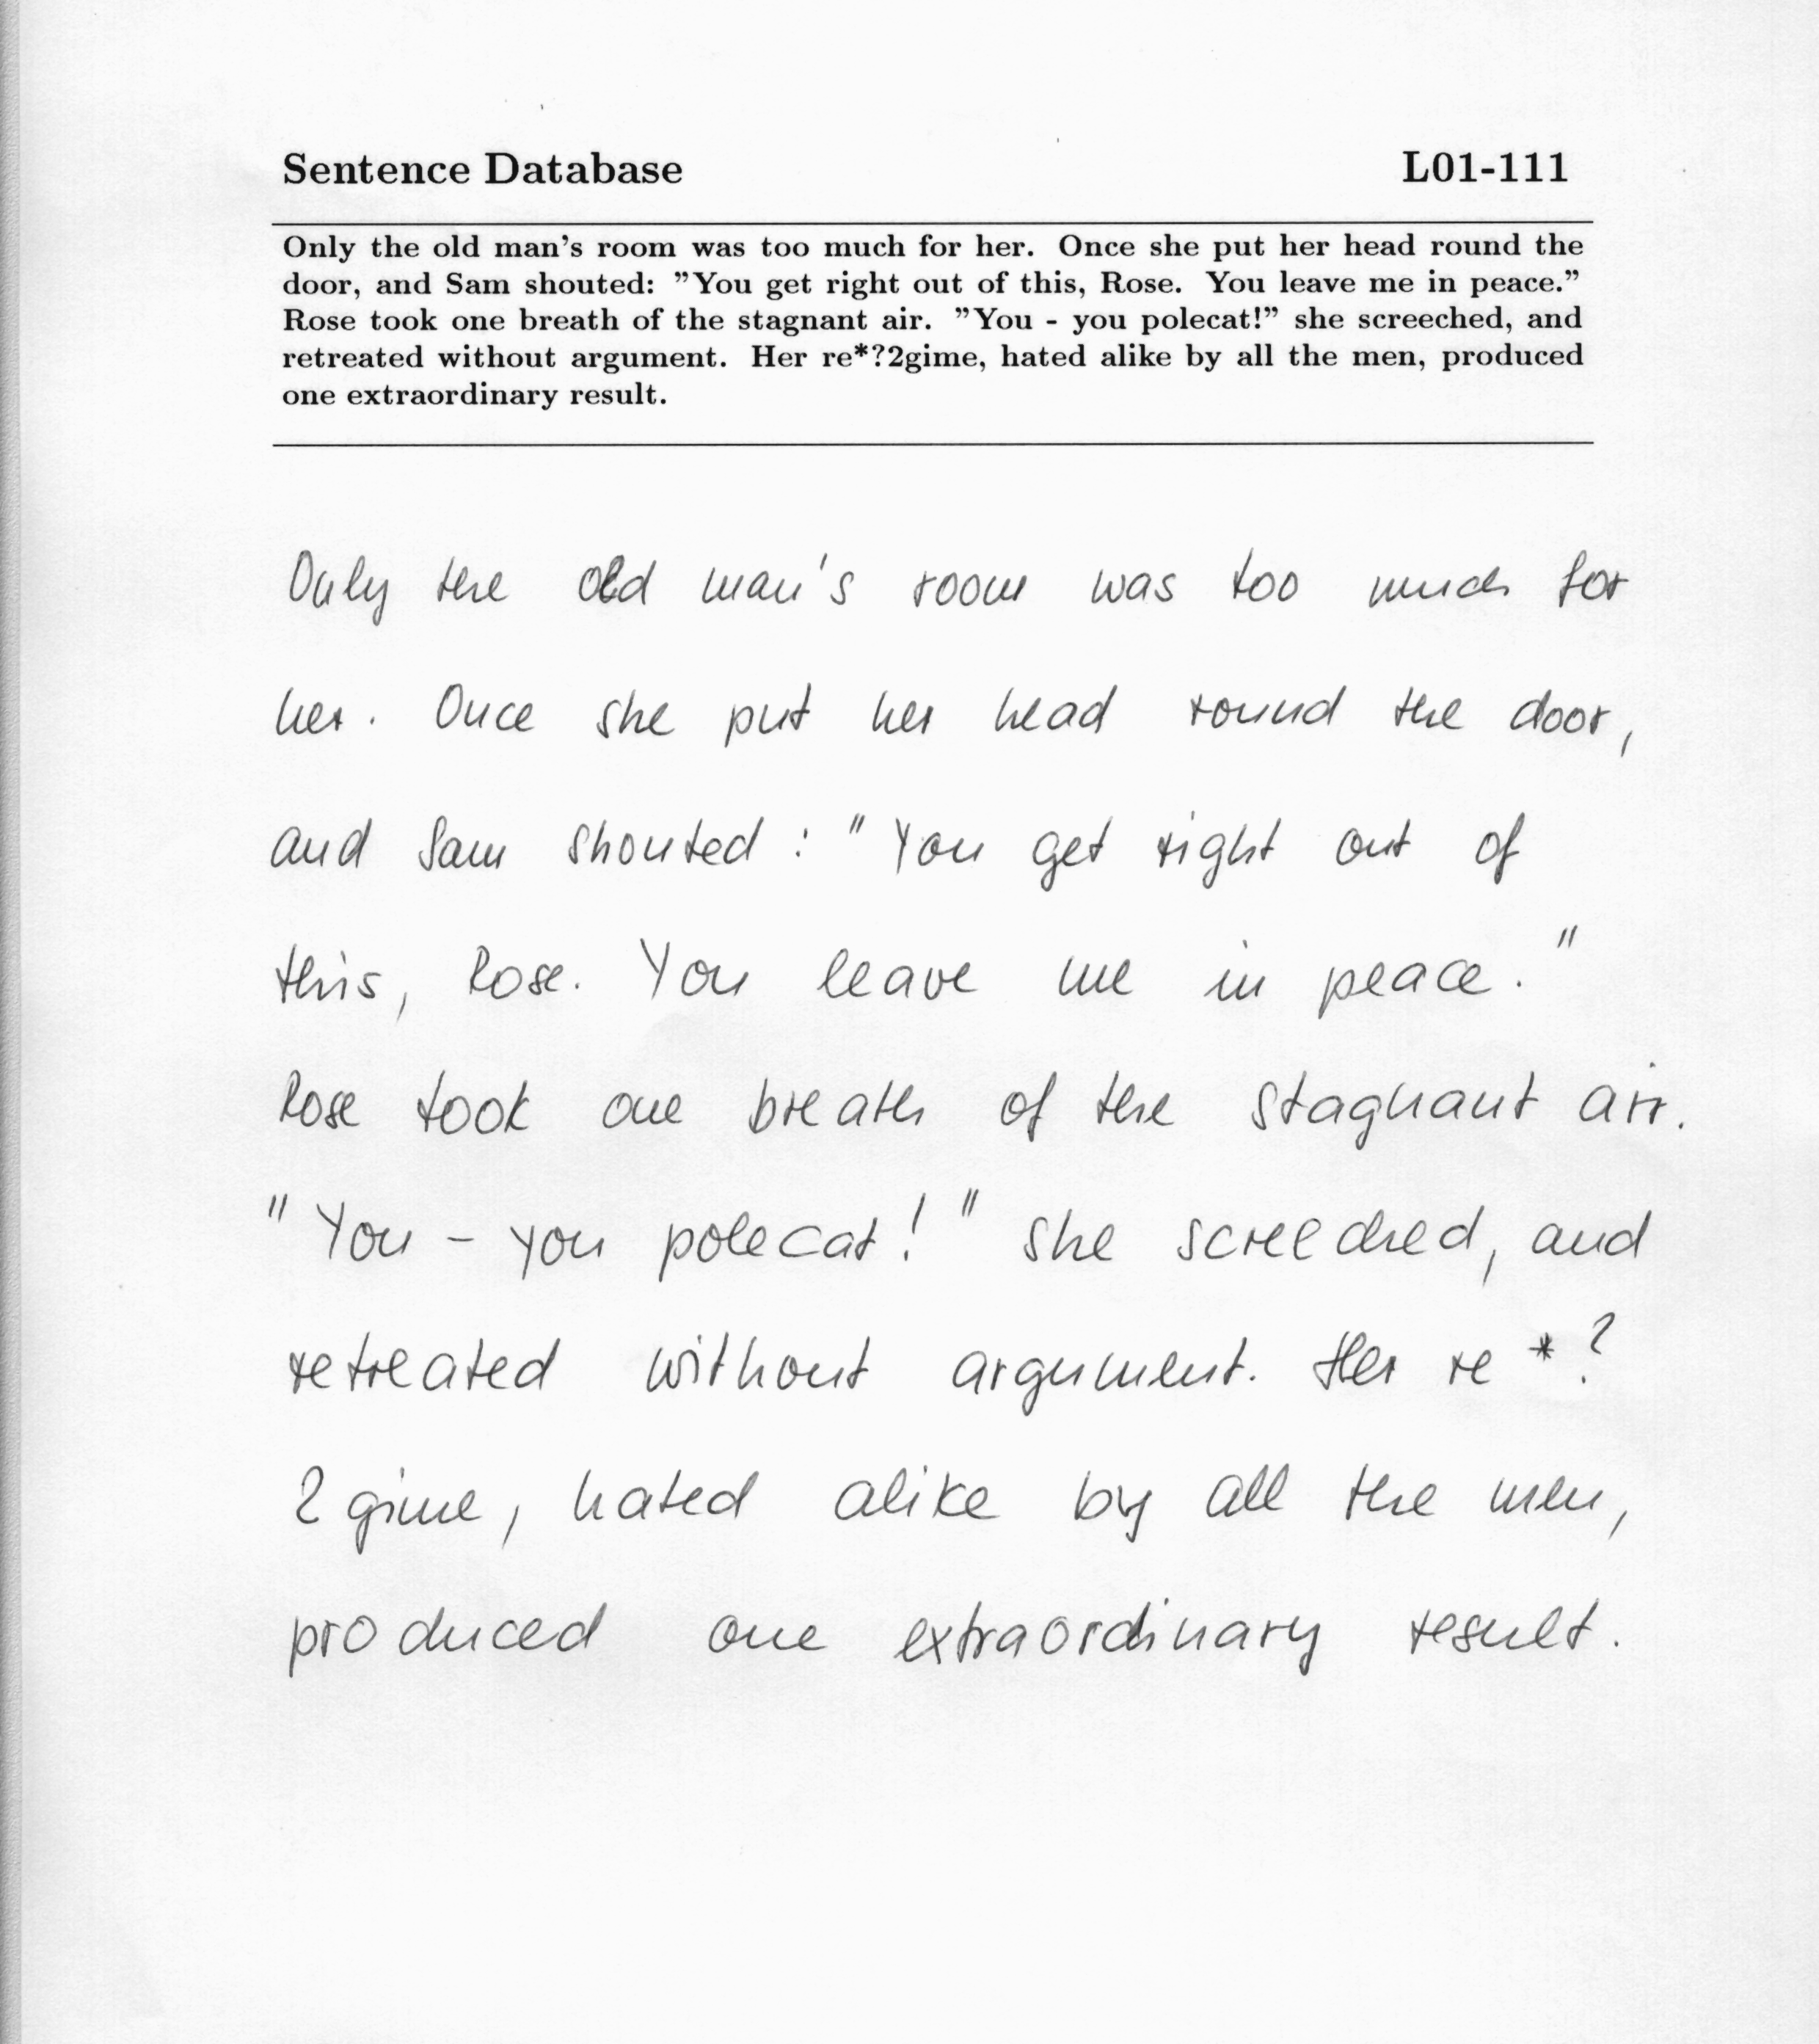 Sentence Database L01-111
Only the old man's room was too much for her. Once she put her head round the
door, and Sam shouted: ”You get right out of this, Rose. You leave me in peace.”
Rose took one breath of the stagnant air. ”You - you polecat!” she screeched, and
retreated without argument. Her re*?2gime, hated alike by all the men, produced
one extraordinary result.
Only the old man's room was too much for
her. Once she put her head round the door,
and Sam shouted : "You get right out of
this, Rose. You leave me in peace."
Rose took one breath of the stagnant air.
"You - you polecat!" she screeched, and
retreated without argument. Her re*?
2gime, hated alike by all the men,
produced one extraordinary result.